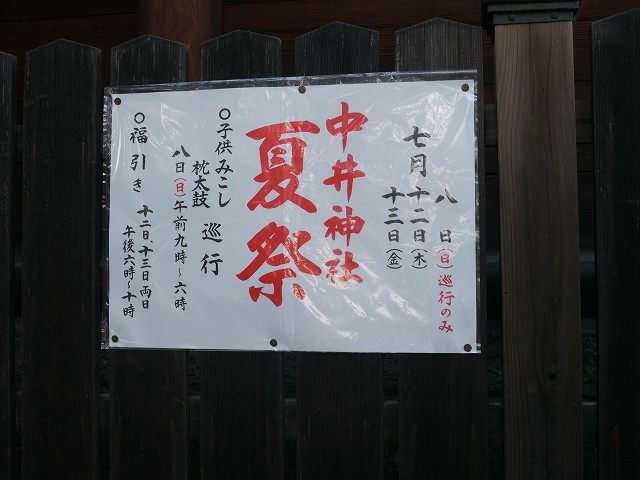 八日(日)巡行のみ
七月十二日(木)
十三日(金)
中井神社
夏祭
○子供みこし
枕太鼓 巡行
八日(日)午前九時~六時
○福引き 十二日、十三日両日
午後六時~十時